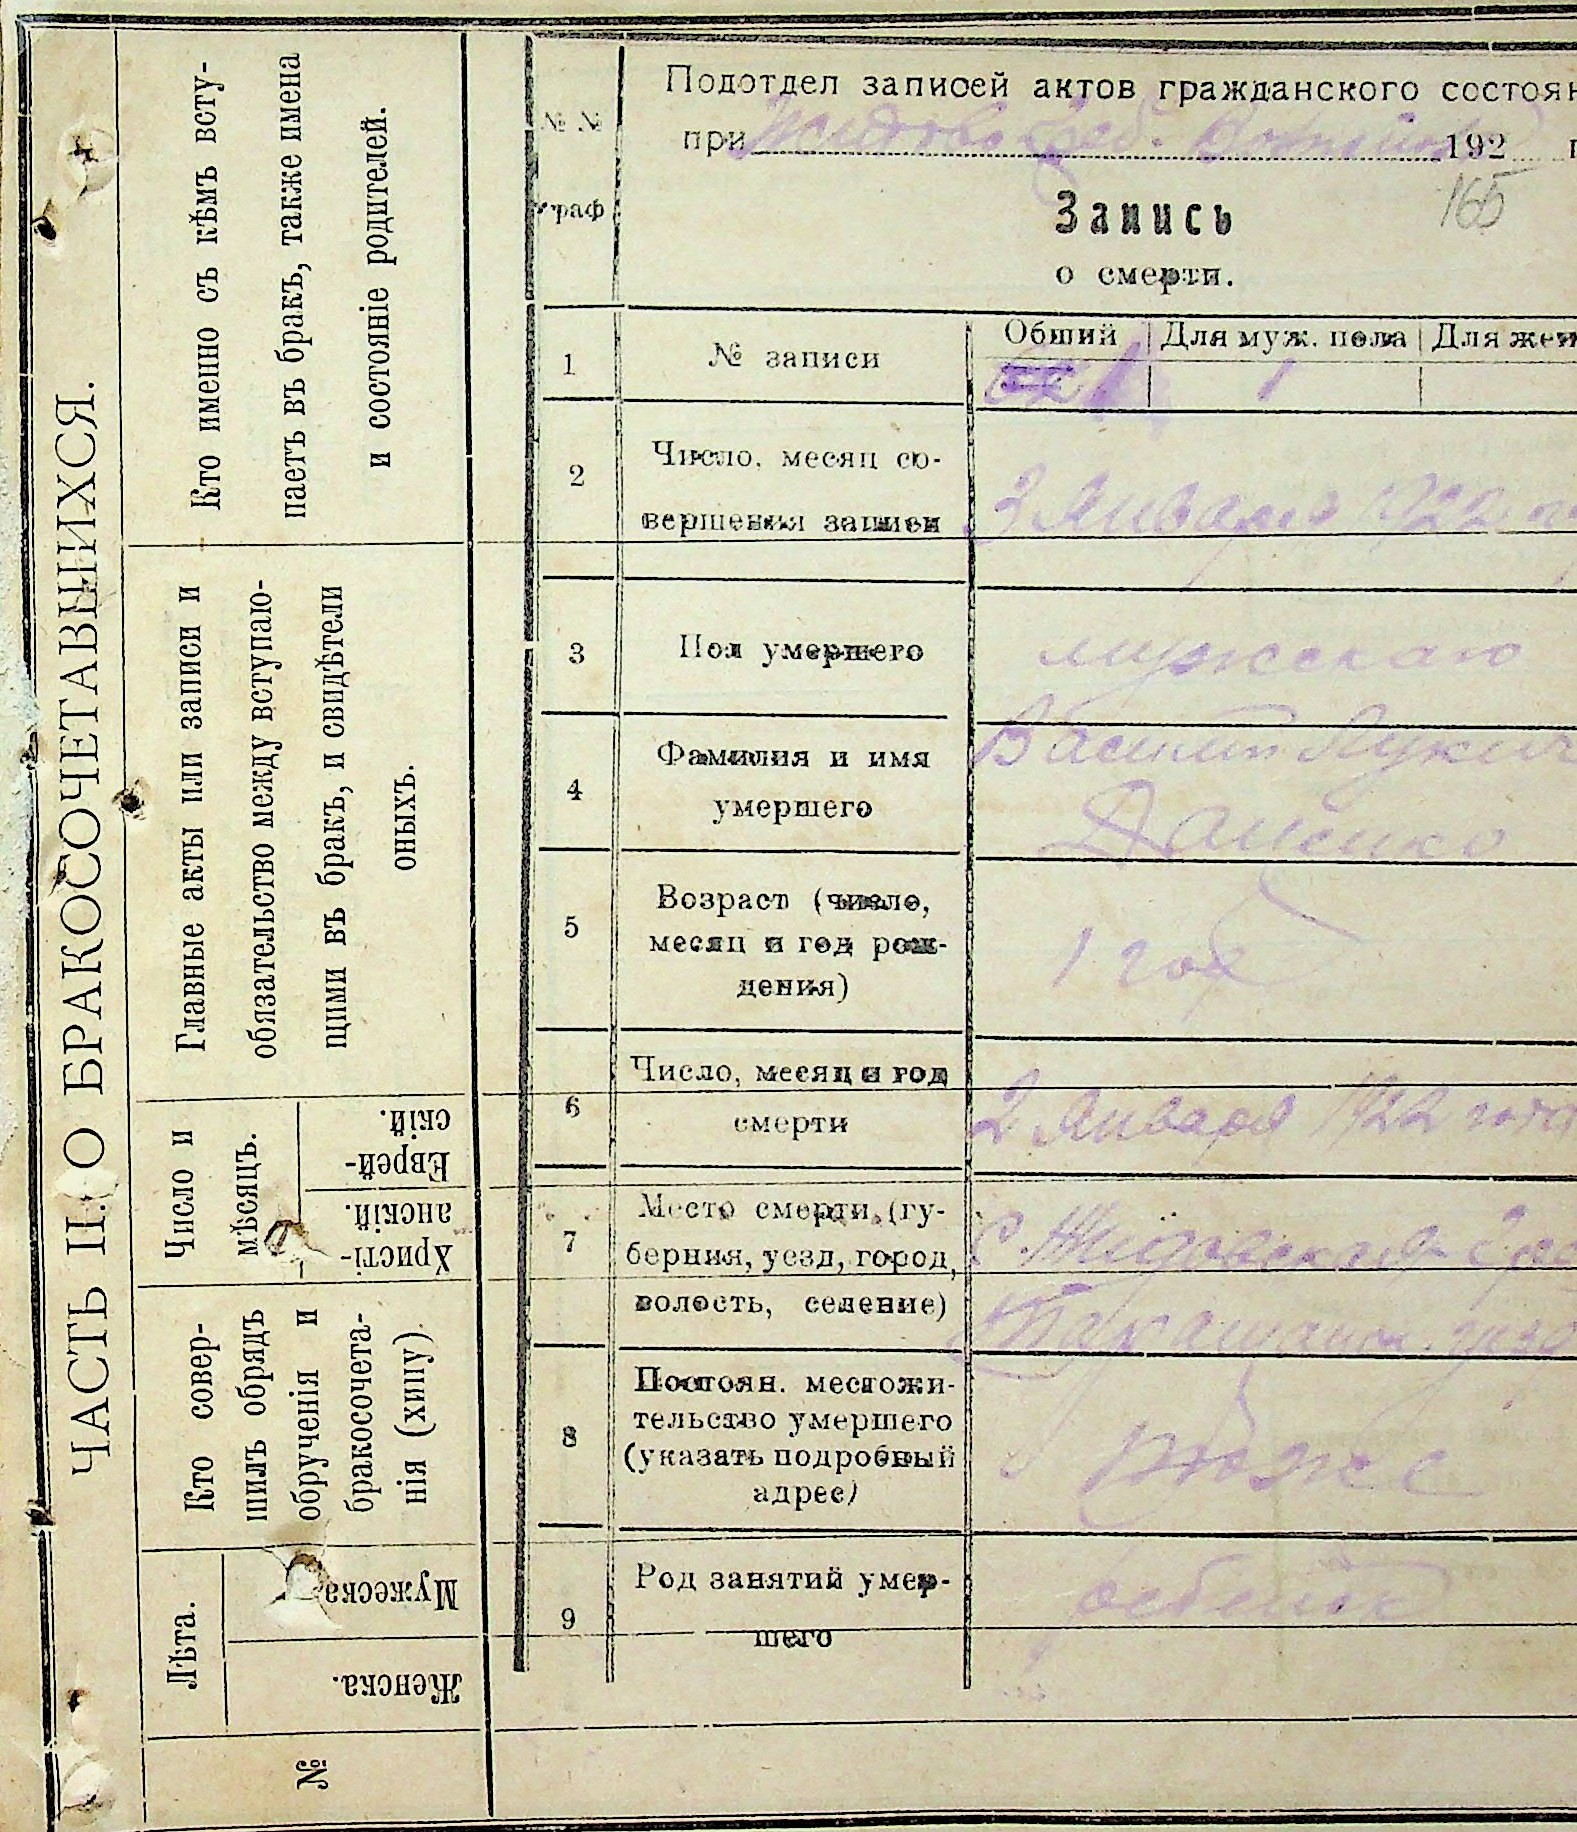 ЧАСТЬ II. О БРАКОСОЧЕТАВШИХСЯ.
Кто именно съ кѣмъ всту-
паетъ въ бракъ, также имена
и состояніе родителей.
Главные акты или записи и
обязательство между вступаю-
щими въ бракъ, и свидѣтели
оныхъ.
Число и
мѣсяцъ.
Еврей-
скій.
Христі-
анскій.
Кто совер-
шилъ обрядъ
обрученія и
бракосочета-
нія (хипу).
Лѣта.
Мужеска
Женска.
№
№ №
граф
Подотдел записей актов гражданского состоян
при 192 г
165
Запись
о смерти.
1
№ записи
Общий
Для муж. пола
Для жен
1
2
Число, месяц со-
вершения записи
3 Января 1922
3
Пол умершего
мужскаго
4
Фамилия и имя
умершего
Василий Лукич
Даценко
5
Возраст (число,
месяц и год рож-
дения)
1 год
6
Число, месяц и год
смерти
2 Января 1922 года
7
Место смерти, (гу-
берния, уезд, город,
волость, селение)
С.
8
Постоян. местожи-
тельство умершего
(указать подробный
адрес)
9
Род занятий умер-
шего